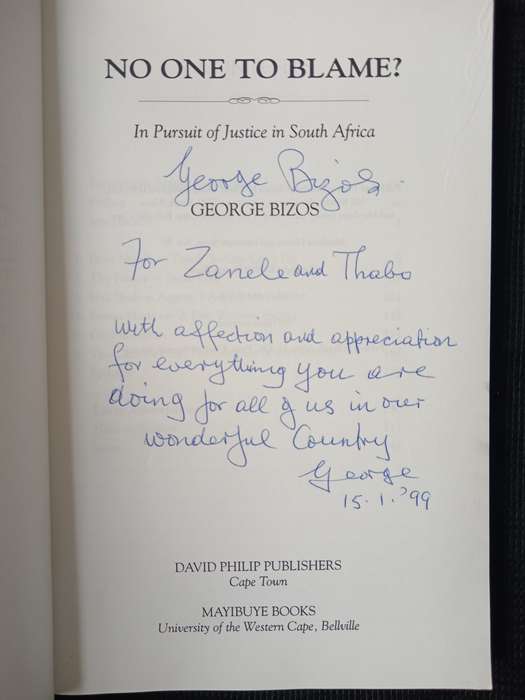 NO ONE TO BLAME?
In Pursuit of Justice in South Africa
George Bizos
GEORGE BIZOS
For Zanele and Thabo
With affection and appreciation
for everything you are
doing for all of us in our
wonderful Country
George
15.1.'99
DAVID PHILIP PUBLISHERS
Cape Town
MAYIBUYE BOOKS
University of the Western Cape, Bellville